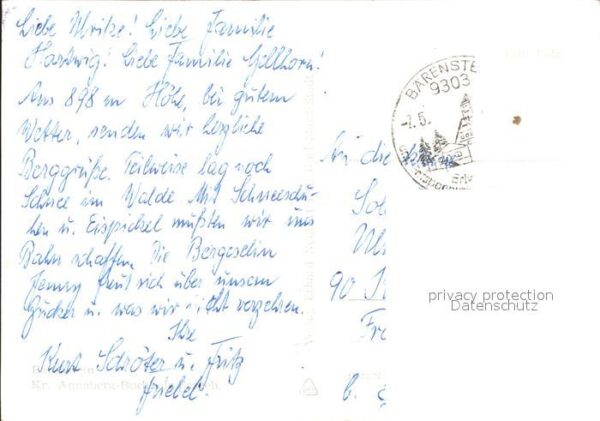 Liebe Ulrike! Liebe Familie
Hartwig! Liebe Familie Gollhorn!
Aus 898 m Höhe, bei gutem
Wetter, senden wir herzliche
Berggrüße. Teilweise lag noch
Schnee im Walde. Mit Schneeschu-
hen u. Eispickel mußten wir uns
Bahn schaffen. Die Bergeselin
Jenny freut sich über unsern
Zucker u. was wir nicht verzehren.
Ihr
Kurt Schröter u. Fritz
Friebel.
BÄRENSTE
9303
An die
90
b.
Kr. Annaberg-Buch
privacy protection
Datenschutz